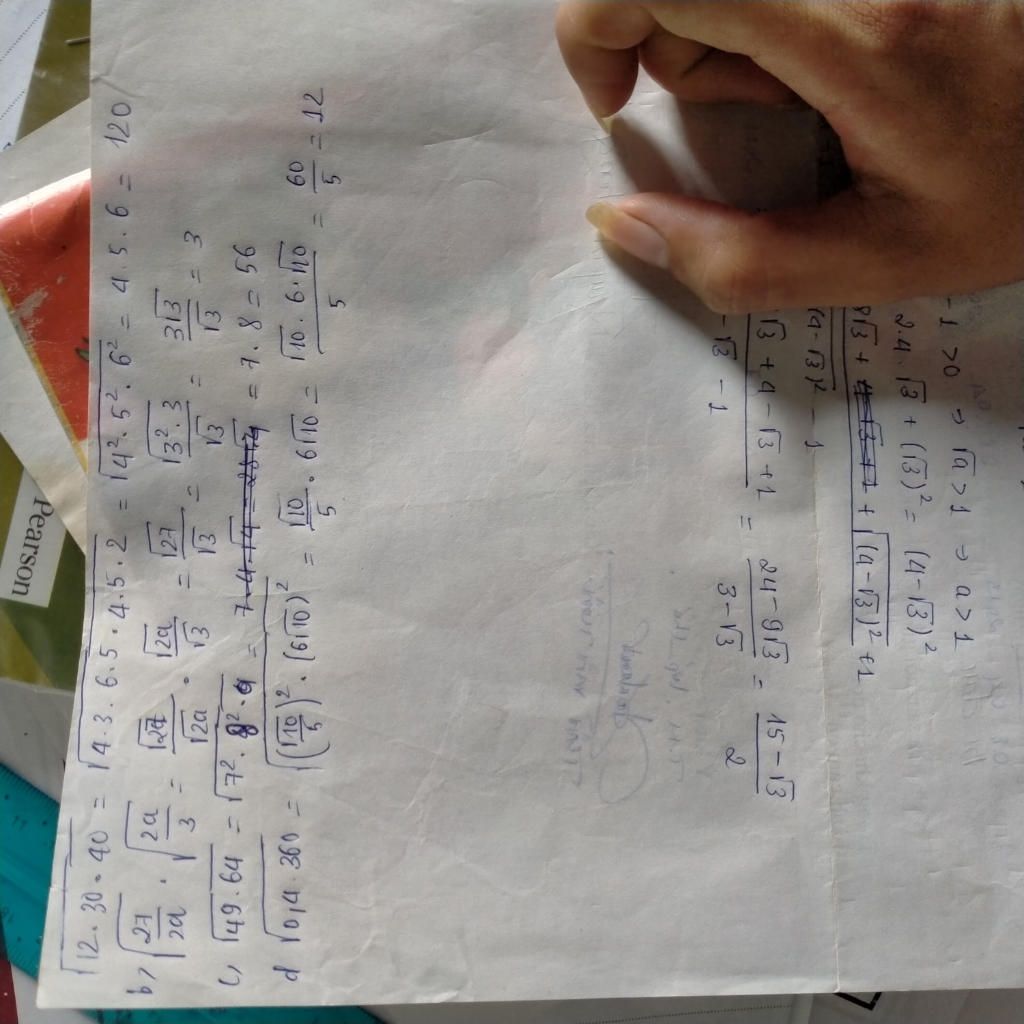 √12.30.40 = √4.3.6.5.4.5.2 = √4².5².6² = 4.5.6 = 120
b) √27/2a . √2a/3 = √27/√2a . √2a/√3 = √27/√3 = √3².3/√3 = 3√3/√3 = 3
c) √49.64 = √7².8² = 7.8 = 56
d √0,4.360 = √(√10/5)².(6√10)² = √10/5 . 6√10 = √10.6.√10/5 = 60/5 = 12
- 1 > 0 ⇒ √a > 1 ⇒ a > 1
2.4.√3 + (√3)² = (4-√3)²
√3 + √(4-√3)² + 1
(4-√3)² - 1
√3 + 4 - √3 + 1 = 24-9√3/3-√3 = 15-√3/2
- √3 - 1
Pearson